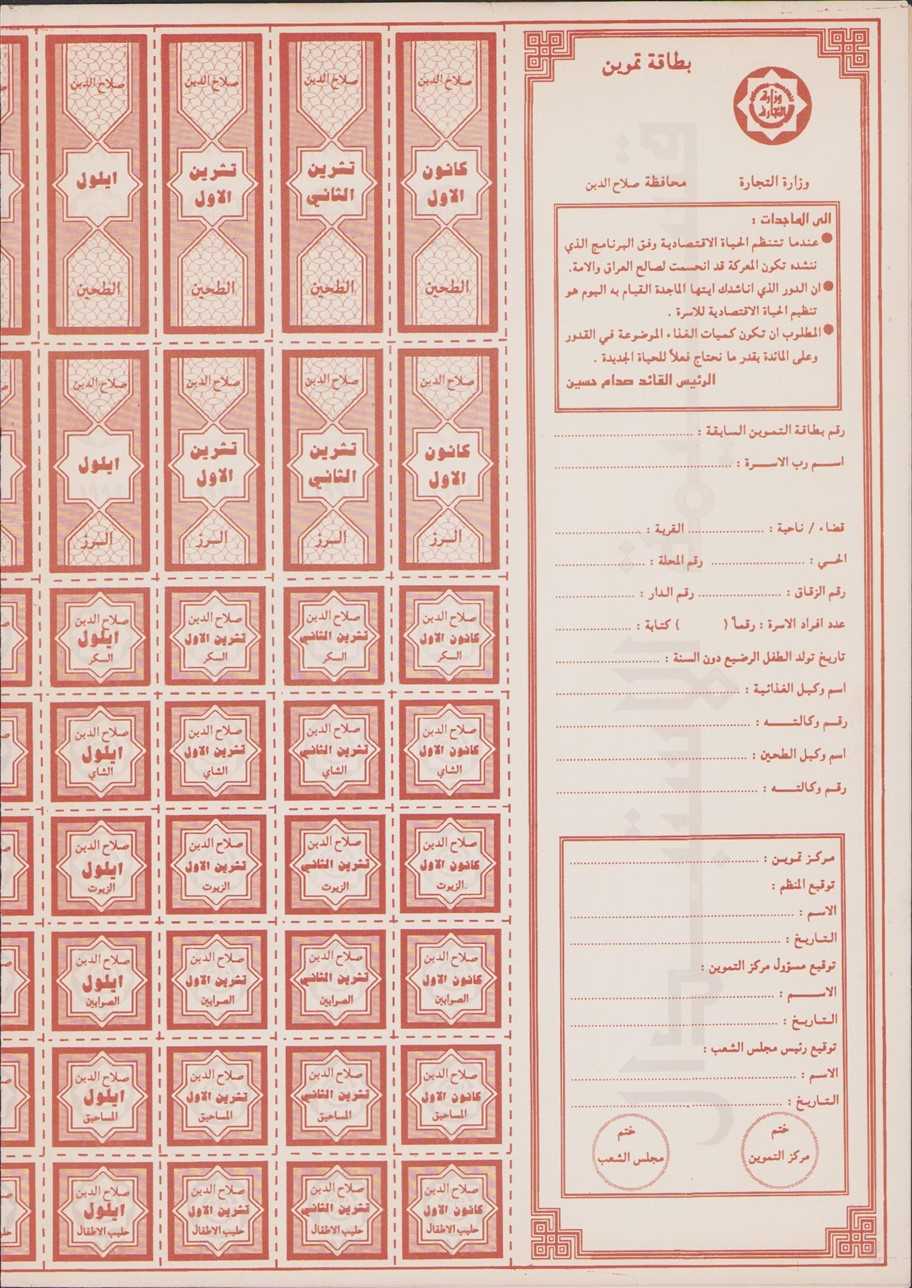 بطاقة تموين
وزارة التجارة
وزارة التجارة
محافظة صلاح الدين
الى الماجدات :
● عندما تنتظم الحياة الاقتصادية وفق البرنامج الذي
ننشده تكون المعركة قد انحسمت لصالح العراق والامة.
● ان الدور الذي اناشدك ايتها الماجدة القيام به اليوم هو
تنظيم الحياة الاقتصادية للاسرة .
● المطلوب ان تكون كميات الغذاء الموضوعة في القدور
وعلى المائدة بقدر ما نحتاج فعلاً للحياة الجديدة .
الرئيس القائد صدام حسين
رقم بطاقة التموين السابقة :
اسم رب الاسرة :
قضاء / ناحية : القرية :
الحي : رقم المحلة :
رقم الزقاق : رقم الدار :
عدد افراد الاسرة : رقماً ( ) كتابة :
تاريخ تولد الطفل الرضيع دون السنة :
اسم وكيل الغذائية :
رقم وكالته :
اسم وكيل الطحين :
رقم وكالته :
مركز تموين :
توقيع المنظم :
الاسم :
التاريخ :
توقيع مسؤول مركز التموين :
الاسم :
التاريخ :
توقيع رئيس مجلس الشعب :
الاسم :
التاريخ :
ختم
مركز التموين
ختم
مجلس الشعب
صلاح الدين صلاح الدين صلاح الدين صلاح الدين
كانون الاول تشرين الثاني تشرين الاول ايلول
الطحين الطحين الطحين الطحين
صلاح الدين صلاح الدين صلاح الدين صلاح الدين
كانون الاول تشرين الثاني تشرين الاول ايلول
الرز الرز الرز الرز
صلاح الدين صلاح الدين صلاح الدين صلاح الدين
كانون الاول تشرين الثاني تشرين الاول ايلول
السكر السكر السكر السكر
صلاح الدين صلاح الدين صلاح الدين صلاح الدين
كانون الاول تشرين الثاني تشرين الاول ايلول
الشاي الشاي الشاي الشاي
صلاح الدين صلاح الدين صلاح الدين صلاح الدين
كانون الاول تشرين الثاني تشرين الاول ايلول
الزيوت الزيوت الزيوت الزيوت
صلاح الدين صلاح الدين صلاح الدين صلاح الدين
كانون الاول تشرين الثاني تشرين الاول ايلول
الصوابين الصوابين الصوابين الصوابين
صلاح الدين صلاح الدين صلاح الدين صلاح الدين
كانون الاول تشرين الثاني تشرين الاول ايلول
المساحيق المساحيق المساحيق المساحيق
صلاح الدين صلاح الدين صلاح الدين صلاح الدين
كانون الاول تشرين الثاني تشرين الاول ايلول
حليب الاطفال حليب الاطفال حليب الاطفال حليب الاطفال